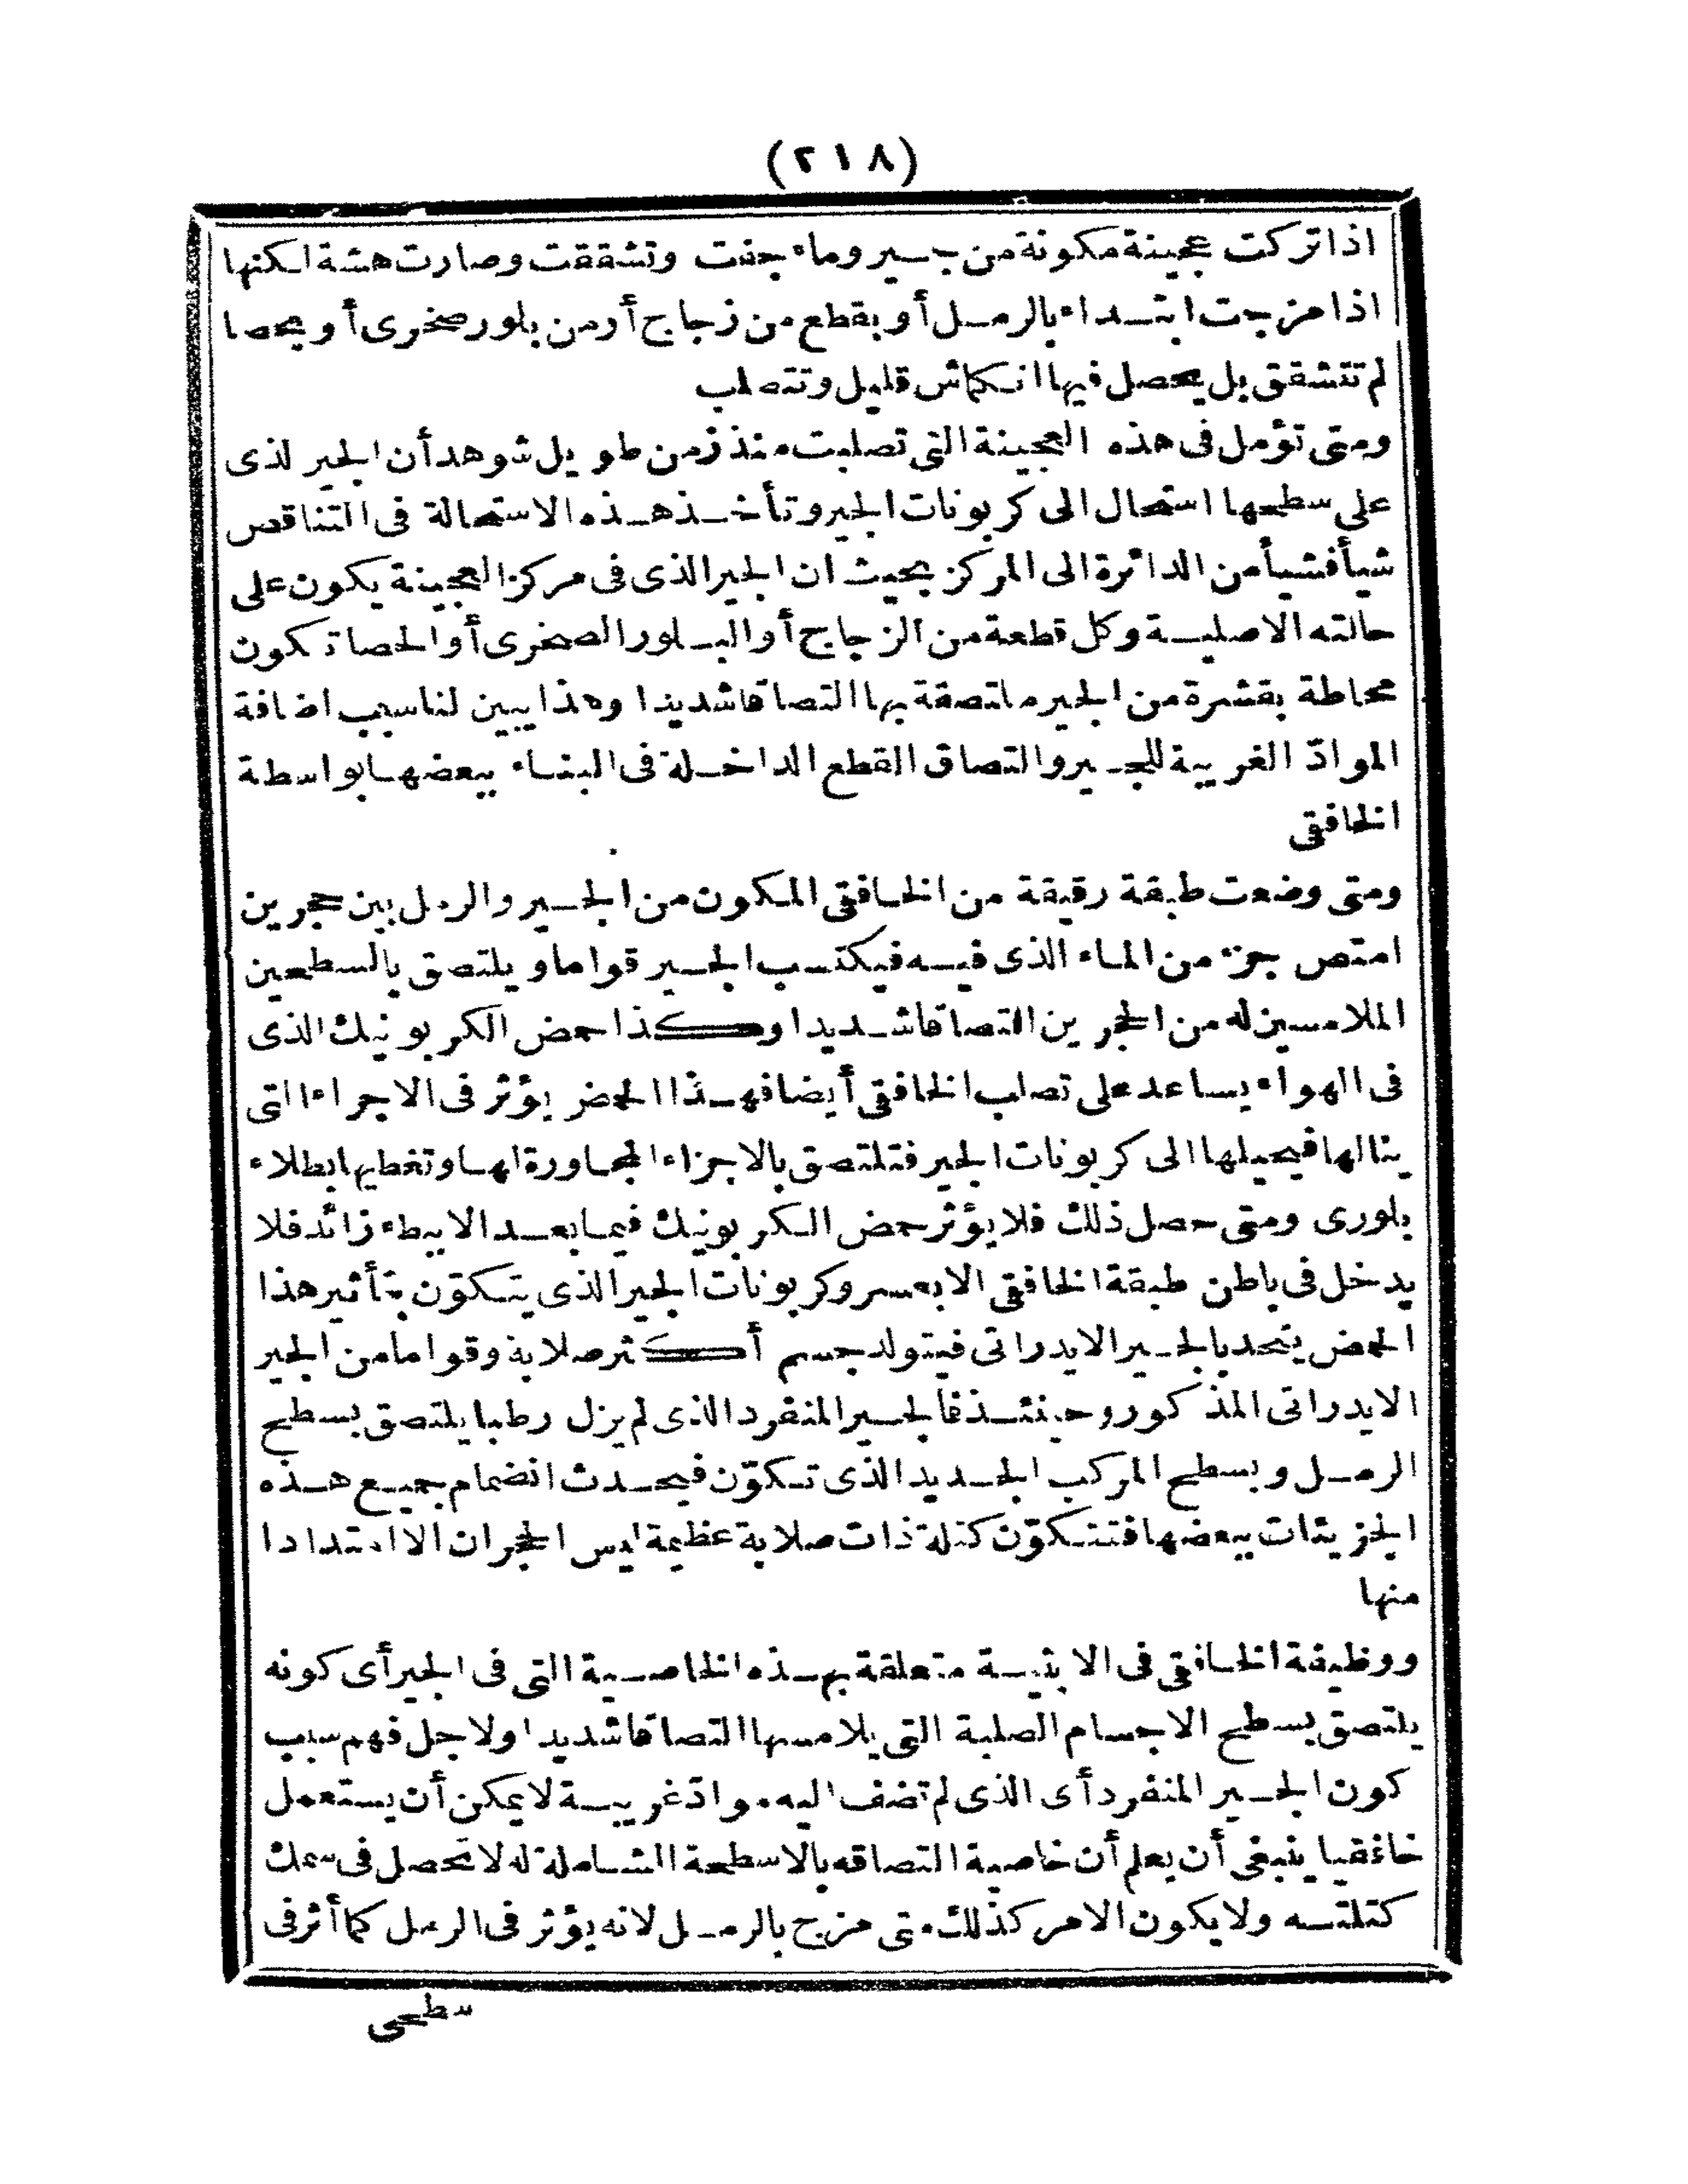 (٢١٨)
اذا تركت عجينة مكونة من جير وماء جفت وتشققت وصارت هشة لكنها
اذا مزجت ابتداء بالرمل أو بقطع من زجاج أو من بلور صخرى أو بحصا
لم تتشقق بل يحصل فيها انكماش قليل وتتصلب
ومتى تؤمل فى هذه العجينة التى تصلبت منذ زمن طويل شوهد أن الجير لذى
على سطحها استحال الى كربونات الجير وتأخذ هذه الاستحالة فى التناقص
شيأ فشيأ من الدائرة الى المركز بحيث ان الجير الذى فى مركز العجينة يكون على
حالته الاصلية وكل قطعة من الزجاج أو البلور الصخرى أو الحصا تكون
محاطة بقشرة من الجير ملتصقة بها التصاقا شديدا وهذا يبين لنا سبب اضافة
الموادّ الغريبة للجير والتصاق القطع الداخلة فى البناء ببعضها بواسطة
الخافقى
ومتى وضعت طبقة رقيقة من الخافقى المكون من الجير والرمل بين حجرين
امتص جزء من الماء الذى فيه فيكتسب الجير قواما ويلتصق بالسطحين
الملامسين له من الحجرين التصاقا شديدا وهكذا حمض الكربونيك الذى
فى الهواء يساعد على تصلب الخافقى أيضا فهذا الحمض يؤثر فى الاجزاء التى
ينالها فيحيلها الى كربونات الجير فتلتصق بالاجزاء المجاورة لها وتغطيها بطلاء
بلورى ومتى حصل ذلك فلا يؤثر حمض الكربونيك فيما بعد الا ببطء زائد فلا
يدخل فى باطن طبقة الخافقى الا بعسر وكربونات الجير الذى يتكوّن بتأثير هذا
الحمض يتحد بالجير الايدراتى فيتولد جسم أكثر صلابة وقواما من الجير
الايدراتى المذكور وحينئذ فالجير المنفرد الذى لم يزل رطبا يلتصق بسطح
الرمل وبسطح المركب الجديد الذى تكوّن فيحدث انضمام جميع هذه
الجزيئات ببعضها فتتكوّن كتلة ذات صلابة عظيمة ليس الحجران الا امتدادا
منها
ووظيفة الخافقى فى الابنية متعلقة بهذه الخاصية التى فى الجير أى كونه
يلتصق بسطح الاجسام الصلبة التى يلامسها التصاقا شديدا ولاجل فهم سبب
كون الجير المنفرد أى الذى لم تضف اليه موادّ غريبة لا يمكن أن يستعمل
خافقيا ينبغى أن يعلم أن خاصية التصاقه بالاسطحة الشاملة له لا تحصل فى سمك
كتلته ولا يكون الامر كذلك متى مزج بالرمل لانه يؤثر فى الرمل كما أثر فى
سطحى